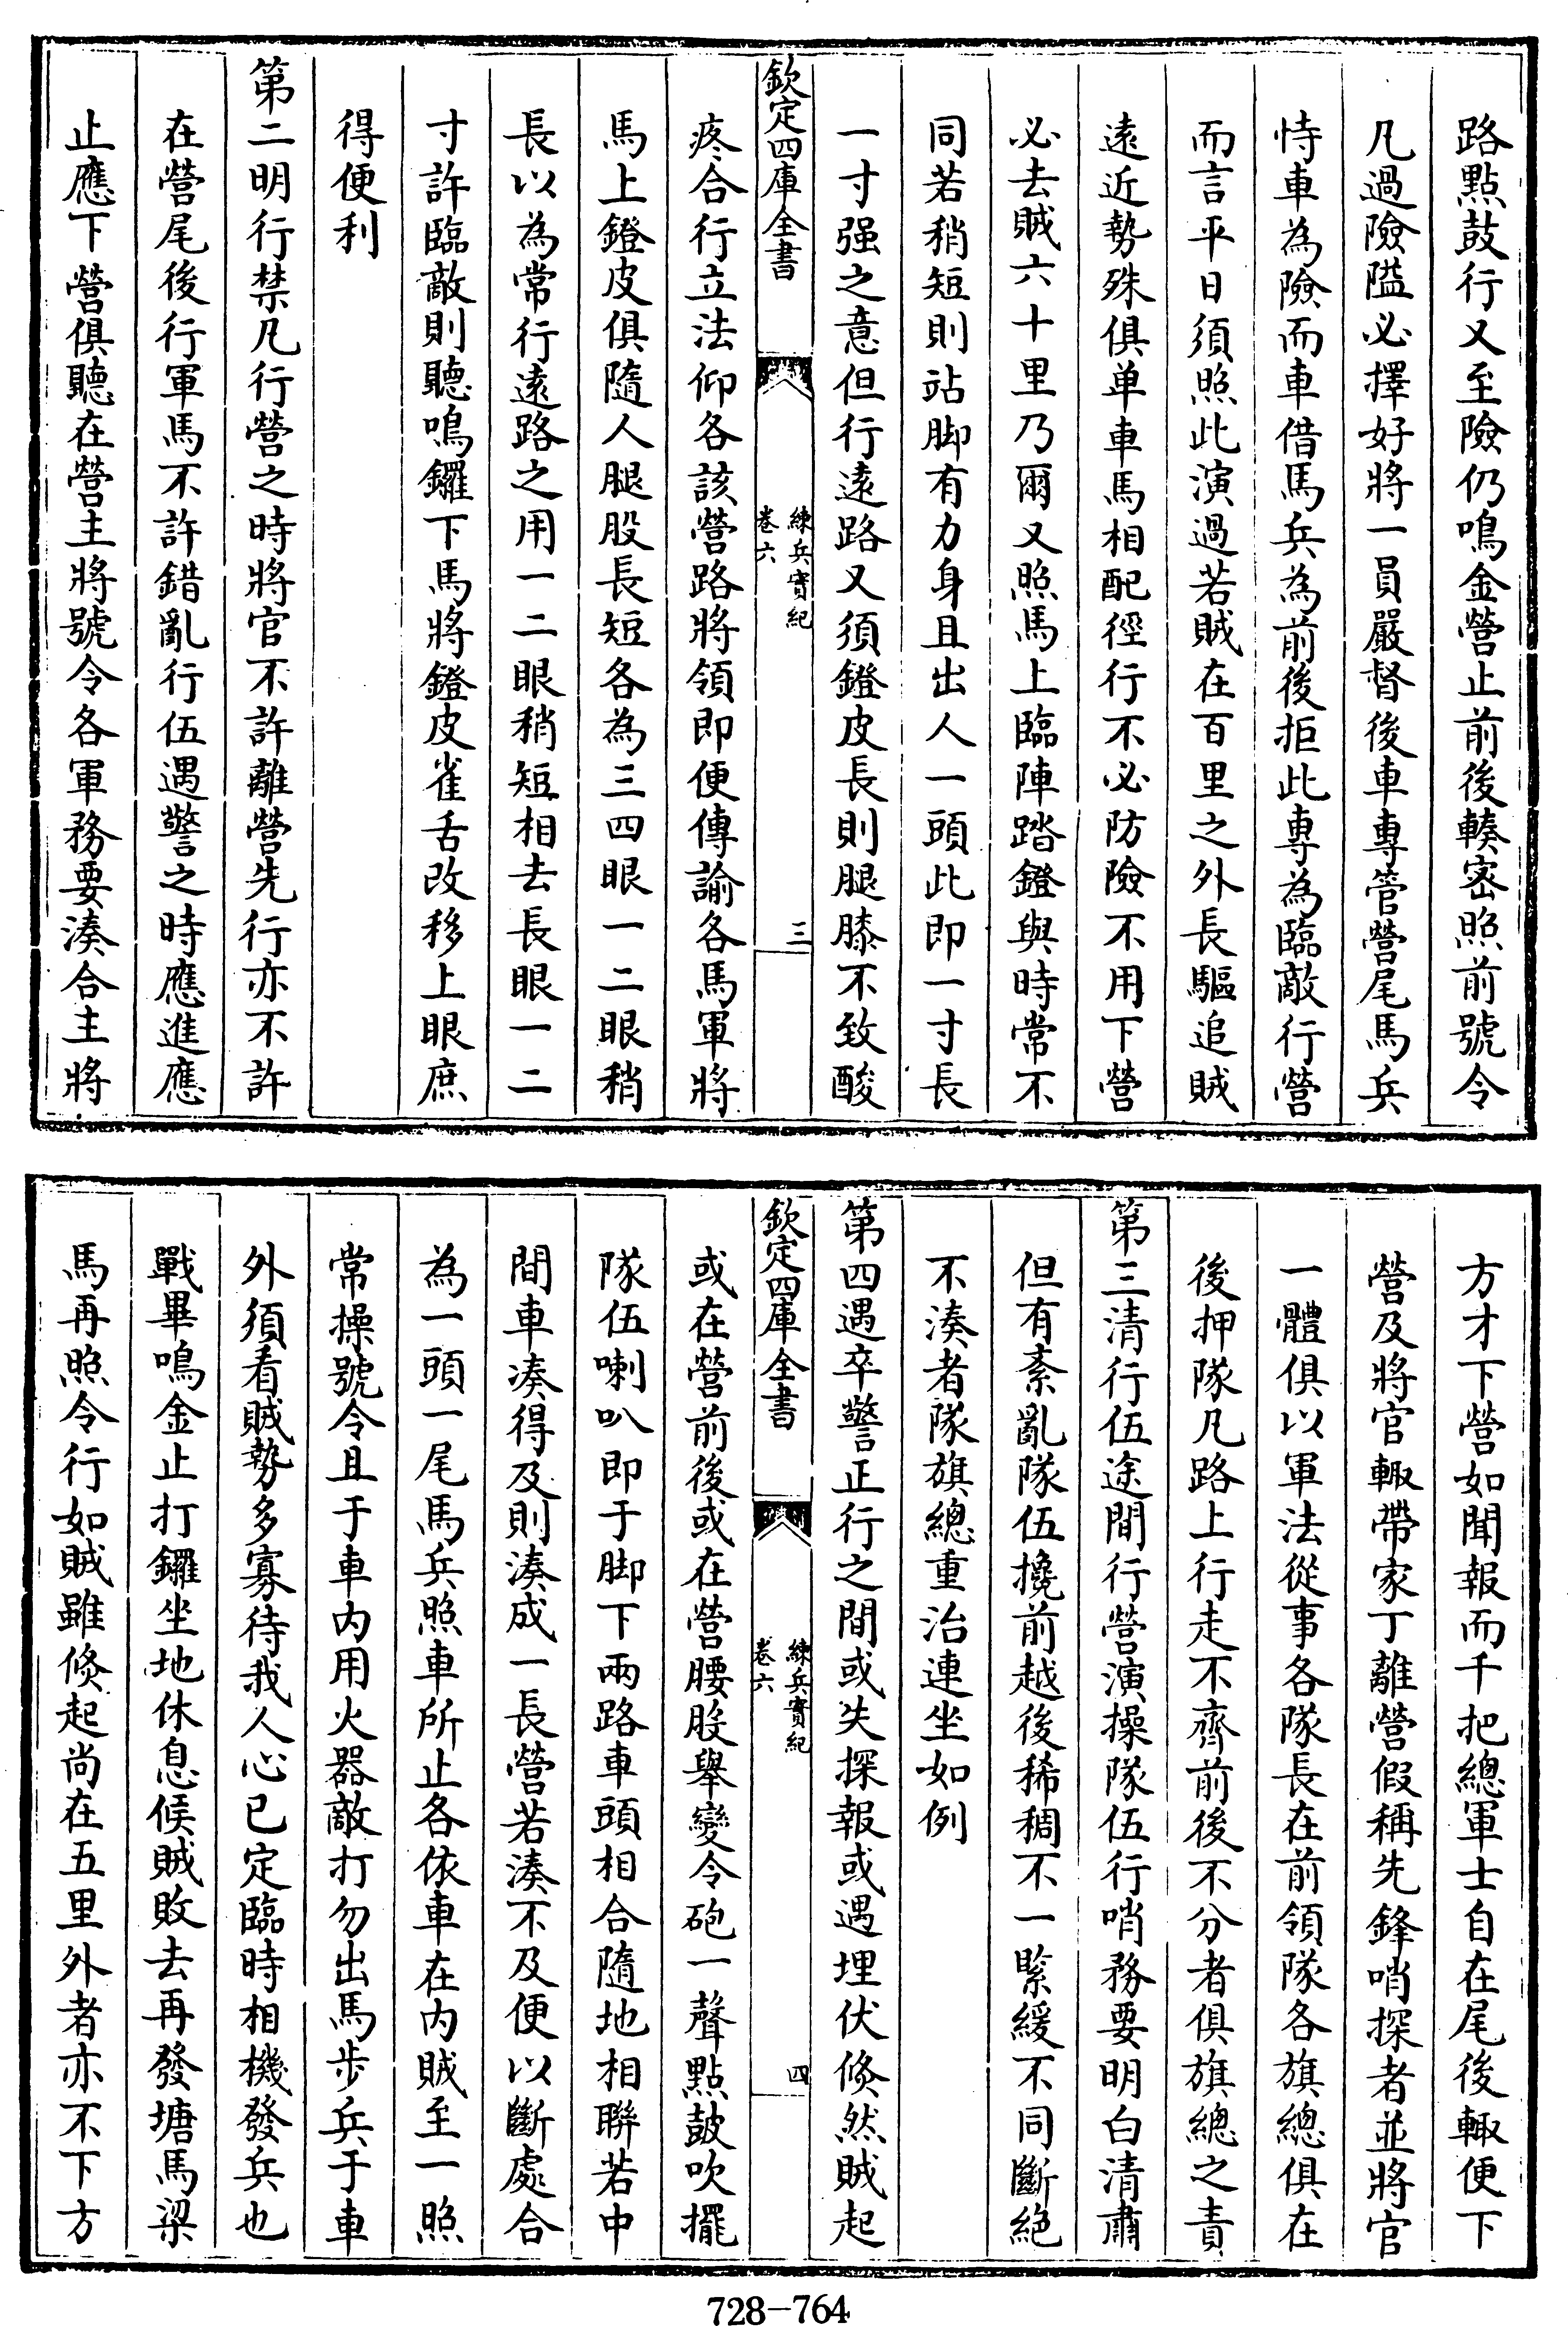 路點鼓行又至險仍鳴金營止前後輳密照前號令
凡過險隘必擇好將一員嚴督後車專管營尾馬兵
恃車為險而車借馬兵為前後拒此專為臨敵行營
而言平日須照此演過若賊在百里之外長驅追賊
遠近勢殊俱单車馬相配徑行不必防險不用下營
必去賊六十里乃爾又照馬上臨陣踏鐙與時常不
同若稍短則站脚有力身且出人一頭此即一寸長
一寸强之意但行遠路又須鐙皮長則腿膝不致酸
欽定四庫全書
練兵實紀
卷六
三
疼合行立法仰各該營路將領即便傳諭各馬軍將
馬上鐙皮俱隨人腿股長短各為三四眼一二眼稍
長以為常行遠路之用一二眼稍短相去長眼一二
寸許臨敵則聽鳴鑼下馬將鐙皮雀舌改移上眼庶
得便利
第二明行禁凡行營之時將官不許離營先行亦不許
在營尾後行軍馬不許錯亂行伍遇警之時應進應
止應下營俱聽在營主將號令各軍務要湊合主將
方才下營如聞報而千把總軍士自在尾後輙便下
營及將官輙帶家丁離營假稱先鋒哨探者並將官
一體俱以軍法從事各隊長在前領隊各旗總俱在
後押隊凡路上行走不齊前後不分者俱旗總之責
第三清行伍途間行營演操隊伍行哨務要明白清肅
但有紊亂隊伍攙前越後稀稠不一緊緩不同斷絶
不湊者隊旗總重治連坐如例
第四遇卒警正行之間或失探報或遇埋伏倐然賊起
欽定四庫全書
練兵實紀
卷六
四
或在營前後或在營腰股舉變令砲一聲點鼓吹擺
隊伍喇叭即于脚下兩路車頭相合隨地相聯若中
間車湊得及則湊成一長營若湊不及便以斷處合
為一頭一尾馬兵照車所止各依車在内賊至一照
常操號令且于車内用火器敵打勿出馬步兵于車
外須看賊勢多寡待我人心已定臨時相機發兵也
戰畢鳴金止打鑼坐地休息候賊敗去再發塘馬梁
馬再照令行如賊雖倐起尚在五里外者亦不下方
728-764